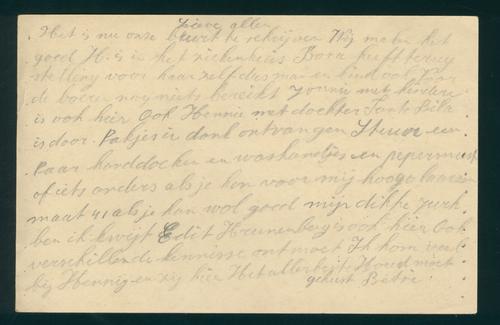 Lieve allen
Het is nu onze beurt te schrijven Wij maken het
goed H. is in het ziekenhuis Bora heeft terug
stelling voor haar zelf des man en kind ook voor
de boern nog niets bereikt Jonnie met kinderen
is ook hier Ook Hennie met dochter Tante Bêts
is door. Pakjes in dank ontvangen Stuur een
paar handdoeken en washandjes en pepermunt
of iets anders als je kan voor mij hooge laarzen
maat 41 als je kan wol goed mijn dikke jurk
ben ik kwijt Edit Heunenberg is ook hier Ook
verschillende kennisse ontmoet Ik kom veel
bij Hennig en zij hier Het allerbeste Houd moet
gekust Betsie